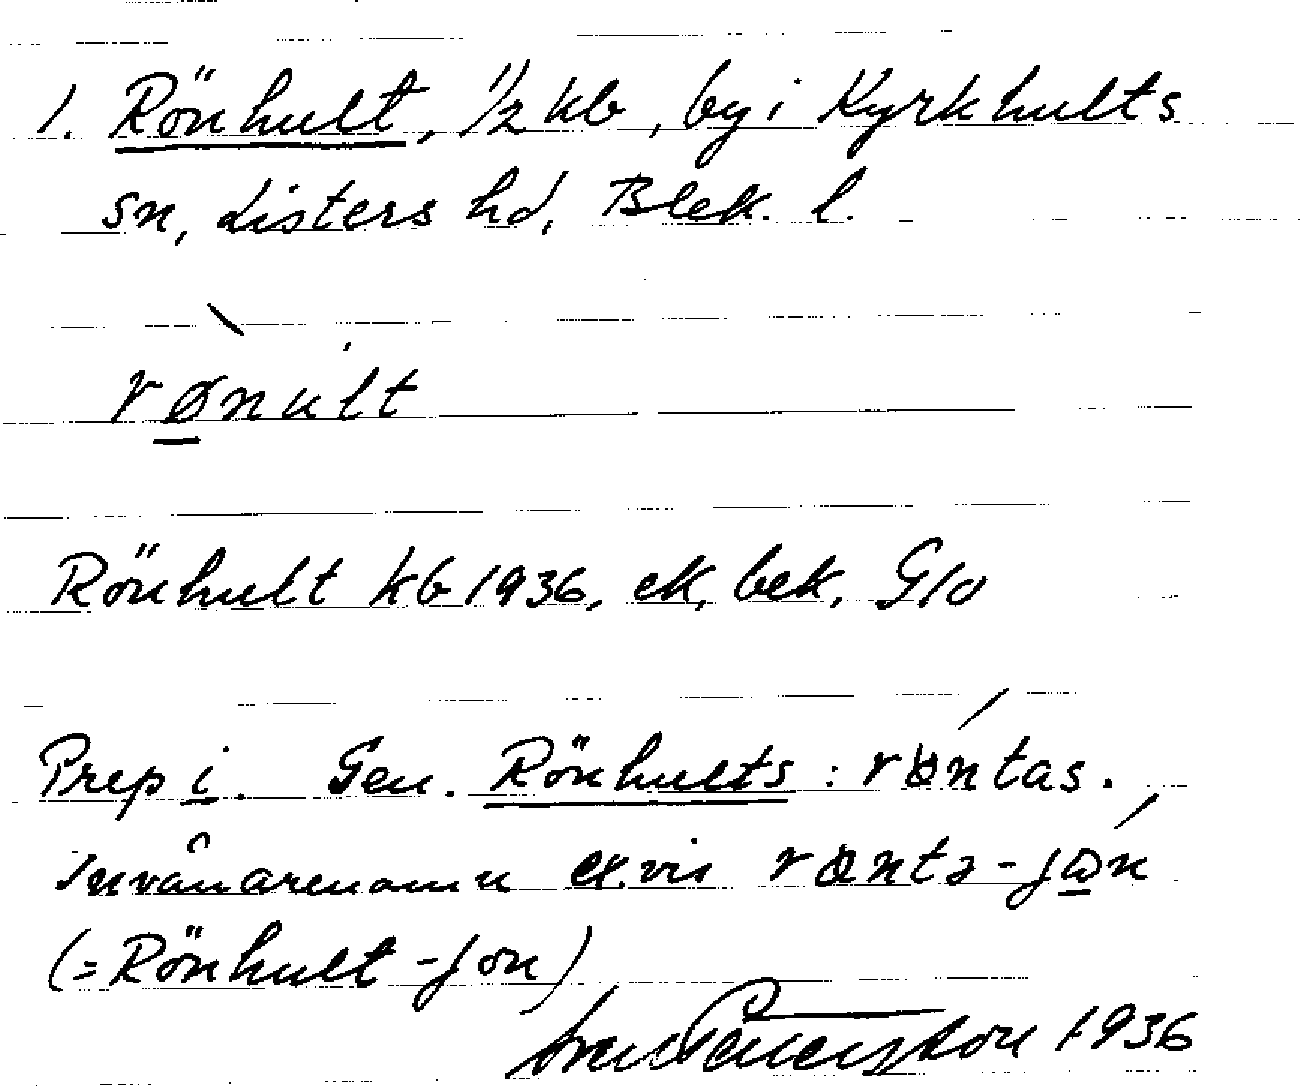 1. Rönhult, 1/2 kb, by i Kyrkhults
sn, Listers hd, Blek. l.
rønult
Rönhult kb 1936, ek, bek. G10
Prep i. Gen. Rönhults: røntas.
Invånarenamn ex.vis røntə-jɷn
(=Rönhult-Jon)
1936